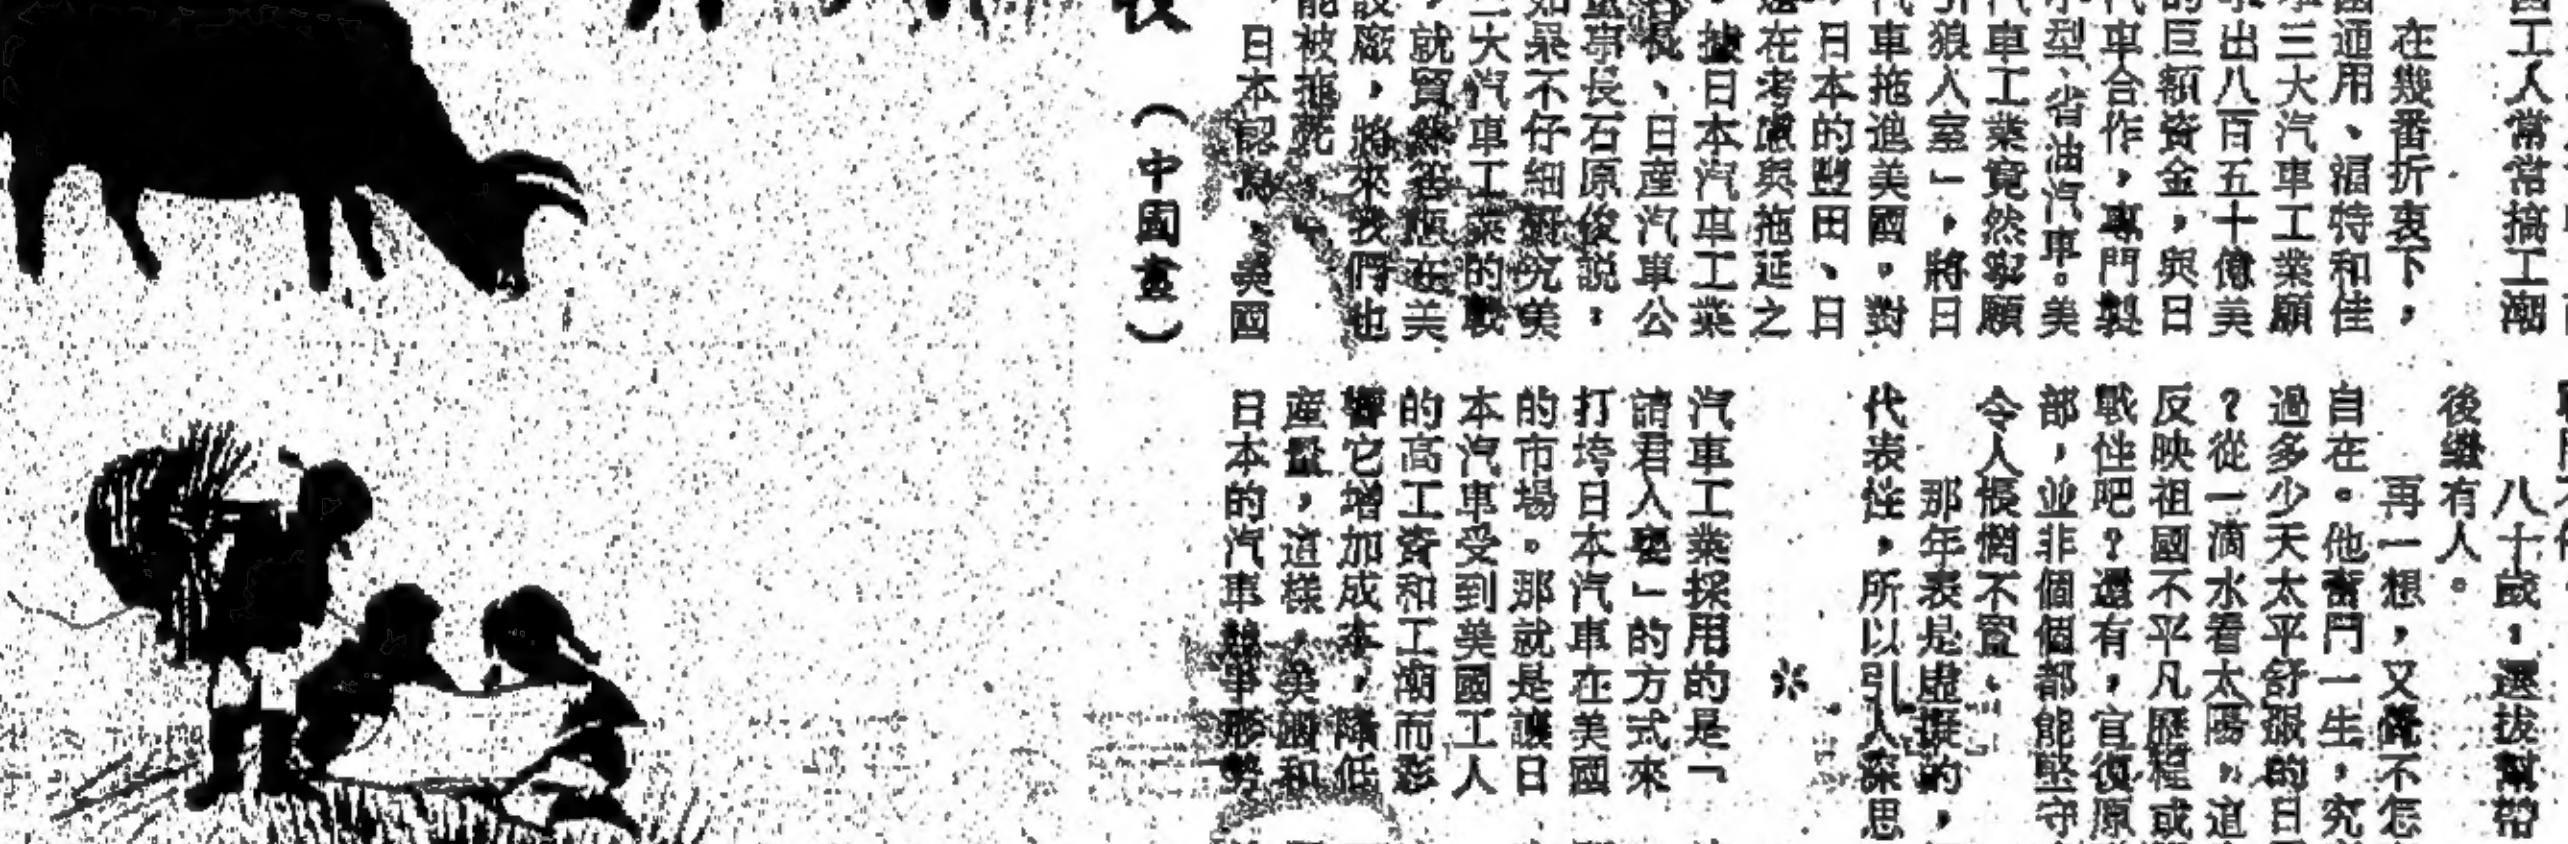 國工人常常搞工潮
在幾番折衷下，
國通用、福特和佳
三大汽車工業願
出八百五十億美
的巨額資金，與日
汽車合作，專門製
小型、省油汽車。美
汽車工業竟然寧願
引狼入室」，將日
汽車拖進美國。對
，日本的豐田、日
還在考慮與拖延之
，據日本汽車工業
會長、日產汽車公
董事長石原俊說，
如果不仔細研究美
三大汽車工業的戰
，就貿然答應在美
設廠，將來我們也
能被拖死
日本認為，美國
牧　（中國畫）
八十歲，選拔幫帶
後繼有人。
再一想，又覺不怎
自在。他奮鬥一生，究
過多少天太平舒服的日
？從一滴水看太陽，這
反映祖國不平凡歷程或
戰性吧？還有，官復原
部，並非個個都能堅守
令人悵惘不寧。
那年表是虛擬的，
代表性，所以引人深思
＊
汽車工業採用的是「
請君入甕」的方式來
打垮日本汽車在美國
的市場。那就是讓日
本汽車受到美國工人
的高工資和工潮而影
響它增加成本，降低
產量，這樣，美國和
日本的汽車競爭形勢